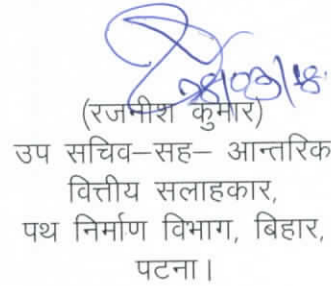 28/03/18
(रजनीश कुमार)
उप सचिव–सह– आन्तरिक
वित्तीय सलाहकार,
पथ निर्माण विभाग, बिहार,
पटना।